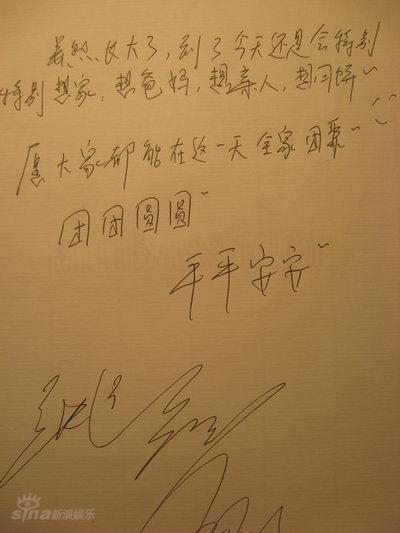 虽然长大了，到了今天还是会特别
特别想家，想爸妈，想亲人，想月饼~
愿大家都能在这一天全家团聚~
团团圆圆~
平平安安~
sina新浪娱乐